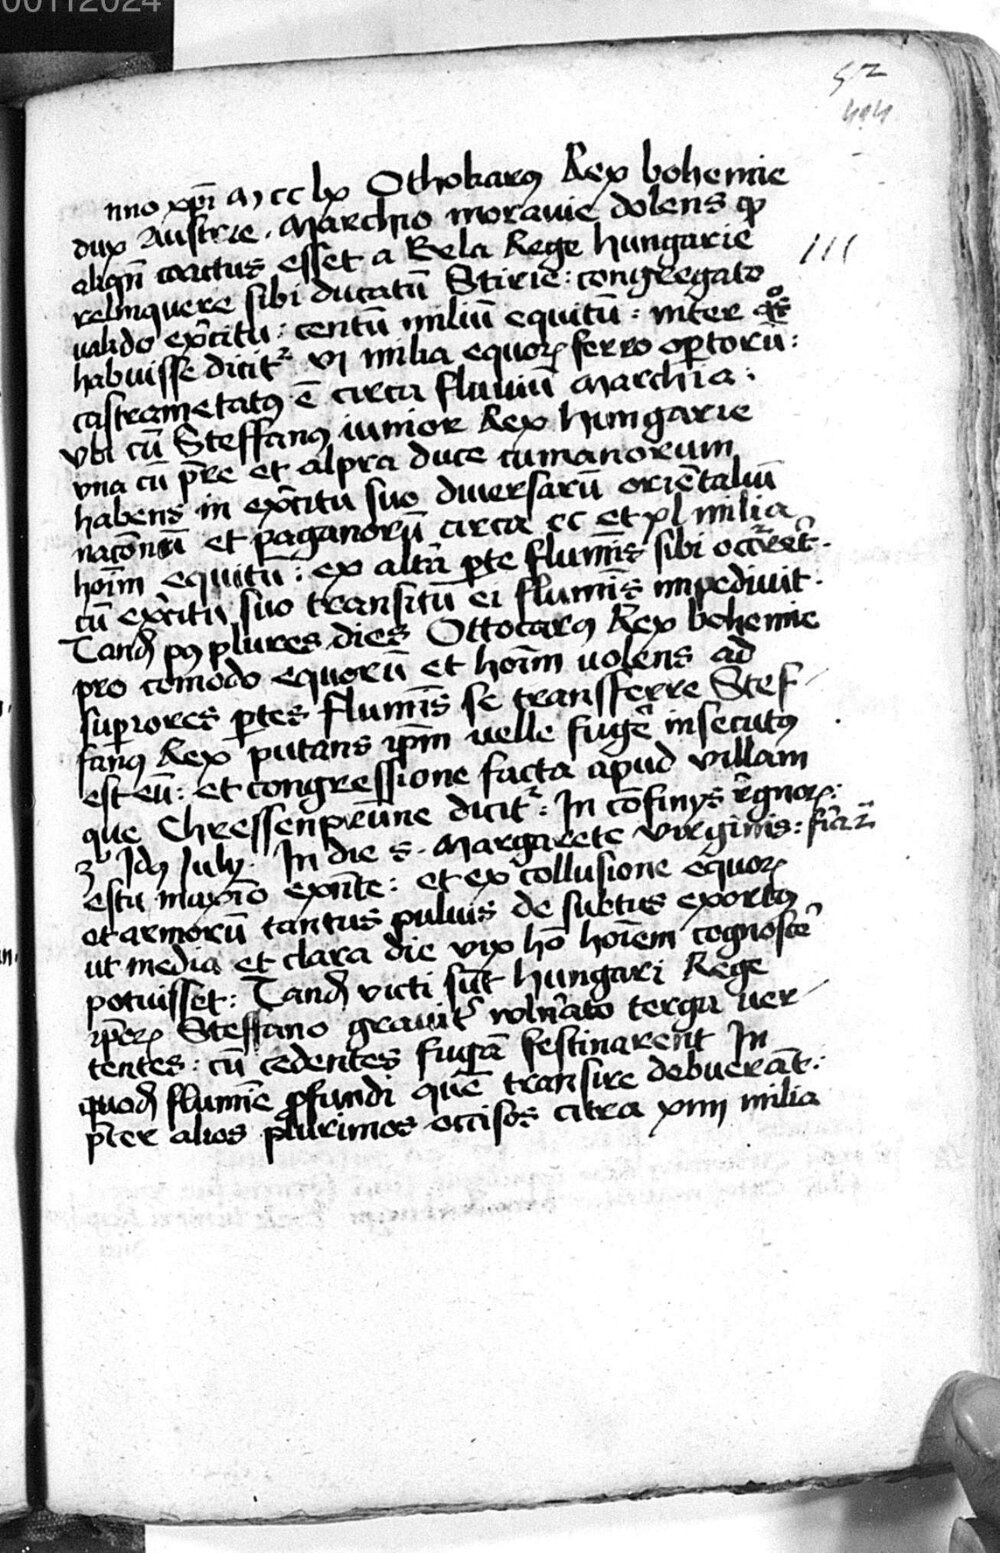 00112024
52
494
nno xp̄i M cc lx Othokarꝯ Rex bohemie
dux Austrie . Marchio moravie dolens ꝙ
aliqn̄ coactus esset a Bela Rege hungarie
111
relinquere sibi ducatū Stirie : congregato
valido exͨitu : centū miliū equitū : inter qͦs
habuisse dicitᷣ vi milia equoꝝ ferro optorū :
castrametatꝯ ē circa fluviū Marchia .
vbi cū Steffanꝯ iunior Rex hungarie
vna cū pr̄e et alpra duce cumanorum
habens in exͨitu suo diversarū orientaliū
nac̄onū et paganorū circa cc et xl milia
hoīm equitū : ex altā pte flumīs sibi occͬreret .
cū exͨitu suo transitū ei flumīs impedivit .
Tandꝫ pꝯ plures dies Ottocarꝯ Rex bohemie
pro comodo equorū et hoīm volens ad
supiores ꝑtes flumīs se transferre Stef
fanꝯ Rex putans ip̄m velle fugͤe insecutꝯ
est eū : et congressione facta apud villam
que Chressenprūne dicitᷣ : In cōfinys rͤgnoꝝ :
3º Idꝯ July . In die s . Margarete virginis :
estu maxīo exn̄te : et ex collusione equoꝝ
et armorū tantus pulvis de subtus exortꝯ
ut media et clara die vix hō hoīem cognoscͤe
potuisset : Tandꝫ victi sūt hungari Rege
ip̄oꝝ Steffano gravitͤ voln̄ato terga ver
tentes : cū cedentes fugā festinarent In
quodꝫ flumīe ꝓfundi quē transire debuerāt :
p̄ter alios plurimos occisos citra xiiii milia